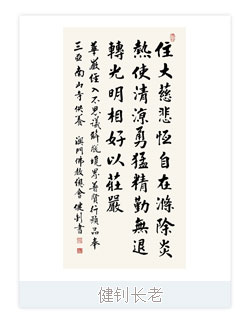 住大慈悲恆自在滌除炎
熱使清涼勇猛精勤無退
轉光明相好以莊嚴
華嚴經入不思議解脫境界普賢行願品奉
三亞南山寺供養 澳門佛教總會 健釗書
健钊长老